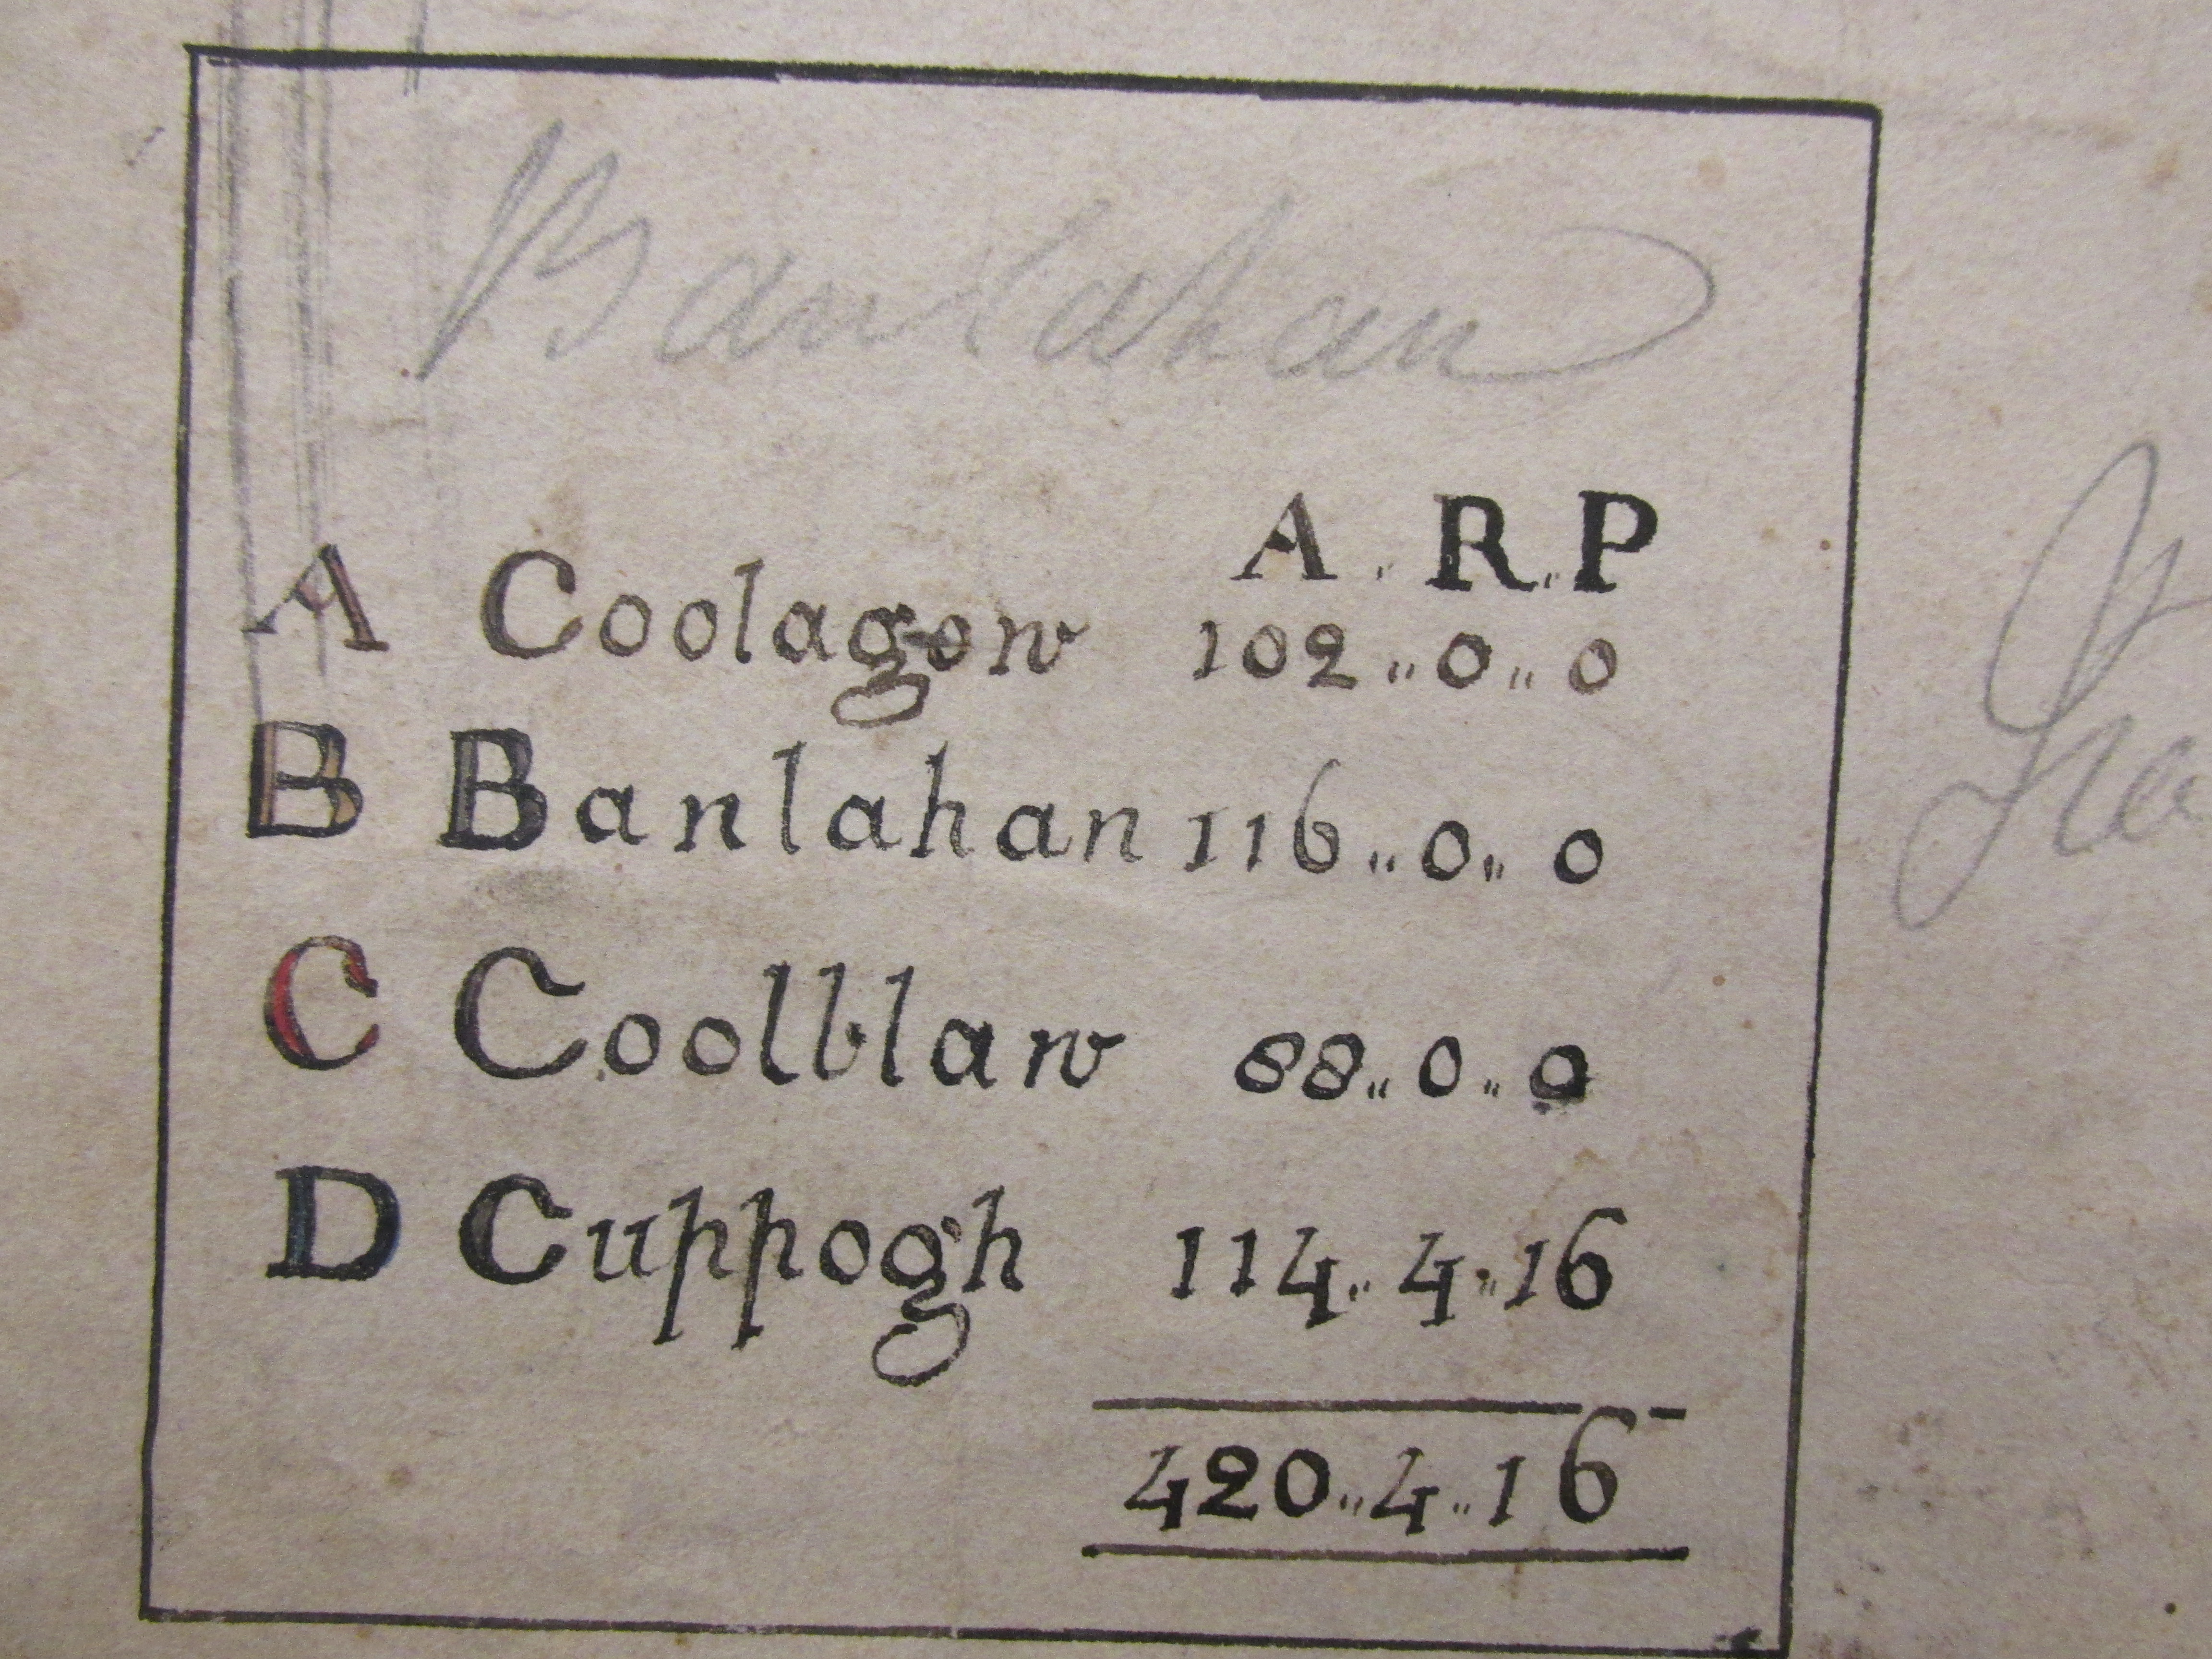 Banlahan
A . R .. P
A Coolagow 102 .. 0 .. 0
B Banlahan 116 .. 0 .. 0
C Coolblaw 88 .. 0 .. 0
D Cuppogh 114 .. 4 .. 16
420 .. 4 .. 16